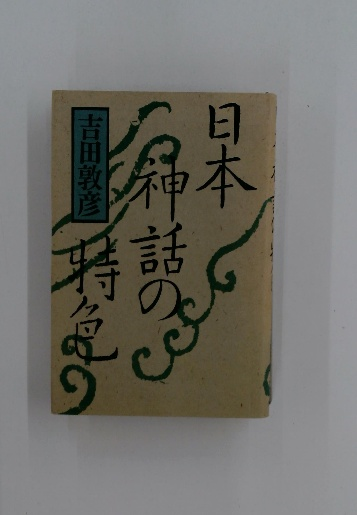 日本
神話の
特色
吉田敦彦